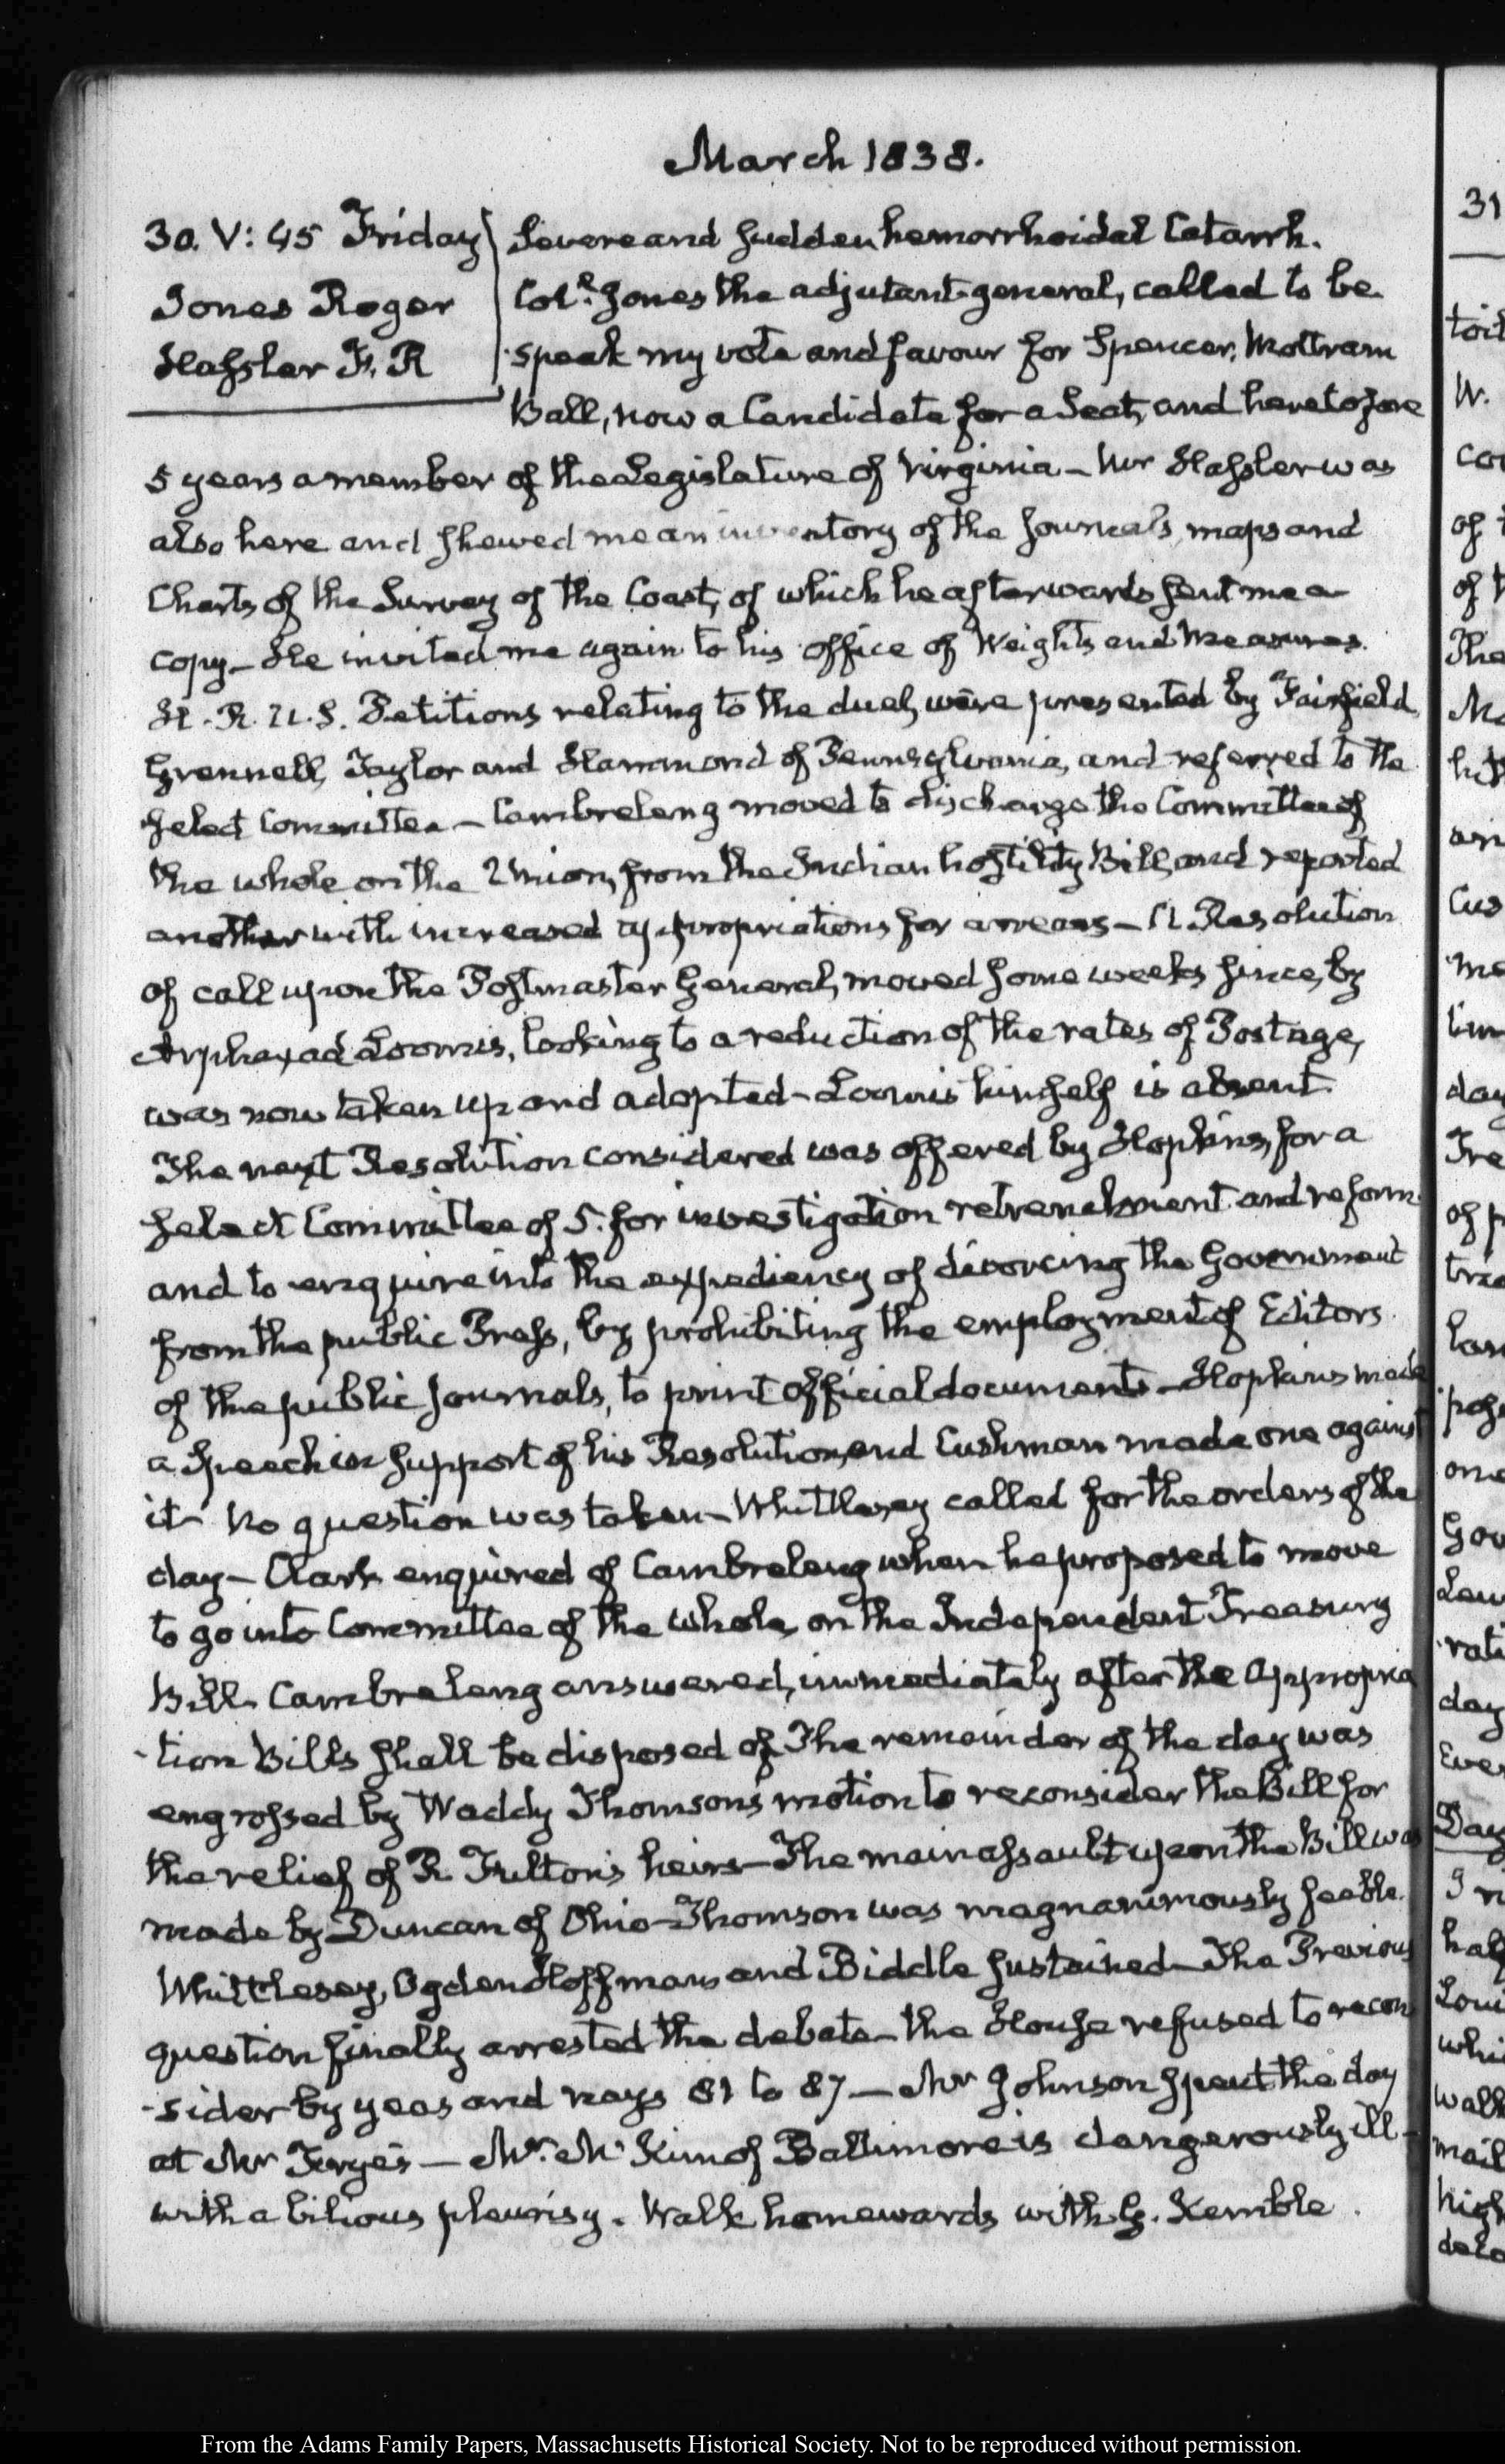 March 1838.
30. V: 45 Friday
Jones Roger
Hassler F. R
Severe and sudden hemorrhoidal Catarrh.
Coll. Jones the adjutant-general, called to be
speak my vote and favour for Spencer, Mottram
Ball, now a Candidate for a Seat, and heretofore
5 years a member of the Legislature of Virginia – Mr Hassler was
also here and shewed me an inventory of the Journals, maps and
Charts of the Survey of the Coast, of which he afterwards sent me a
copy – He invited me again to his office of Weights and Measures.
H. R. U. S. Petitions relating to the duel, were presented by Fairfield,
Grennell, Taylor and Hammond of Pennsylvania, and referred to the
select Committee – Cambreleng moved to discharge the Committee of
the whole on the Union, from the Indian hostility Bill, and reported
another with increased appropriations for arrears – A Resolution
of call upon the Postmaster General, moved some weeks since, by
Arphaxad Loomis, looking to a reduction of the rates of Postage,
was now taken up and adopted – Loomis himself is absent
The next Resolution considered was offered by Hopkins, for a
select Committee of 5. for investigation retrenchment and reform
and to enquire into the expediency of divorcing the Government
from the public Press, by prohibiting the employment of Editors
of the public Journals, to print official documents – Hopkins made
a Speech in support of his Resolution, and Cushman made one against
it – No question was taken – Whittlesey called for the orders of the
day – Clark enquired of Cambreleng when he proposed to move
to go into Committee of the whole, on the Independent Treasury
Bill. Cambreleng answered, immediately after the Appropria
-tion Bills shall be disposed of. The remainder of the day was
engrossed by Waddy Thomson's motion to reconsider the Bill for
the relief of R Fulton's heirs – The main assault upon the Bill was
made by Duncan of Ohio – Thomson was magnanimously feeble.
Whittlesey, Ogden Hoffman and Biddle sustained – The Previous
question finally arrested the debate – the House refused to recon
-sider by yeas and nays 81 to 87 – Mr Johnson spent the day
at Mr Frye's – Mr. Mc Kim of Baltimore is dangerously ill –
with a bilious pleurisy. Walk homewards with G. Kemble.
31
toit
W.
co
of t
of
The
Mo
his
an
Cus
me
tim
day
Tre
of p
tra
lan
pos
one
Gov
Law
rati
day
Eve
Day
I n
half
Loui
whi
walk
mail
high
dela
From the Adams Family Papers, Massachusetts Historical Society. Not to be reproduced without permission.